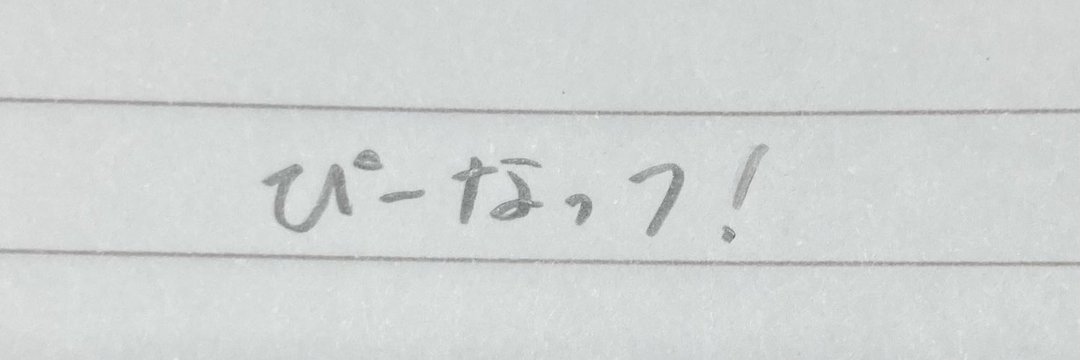 ぴーなっつ!